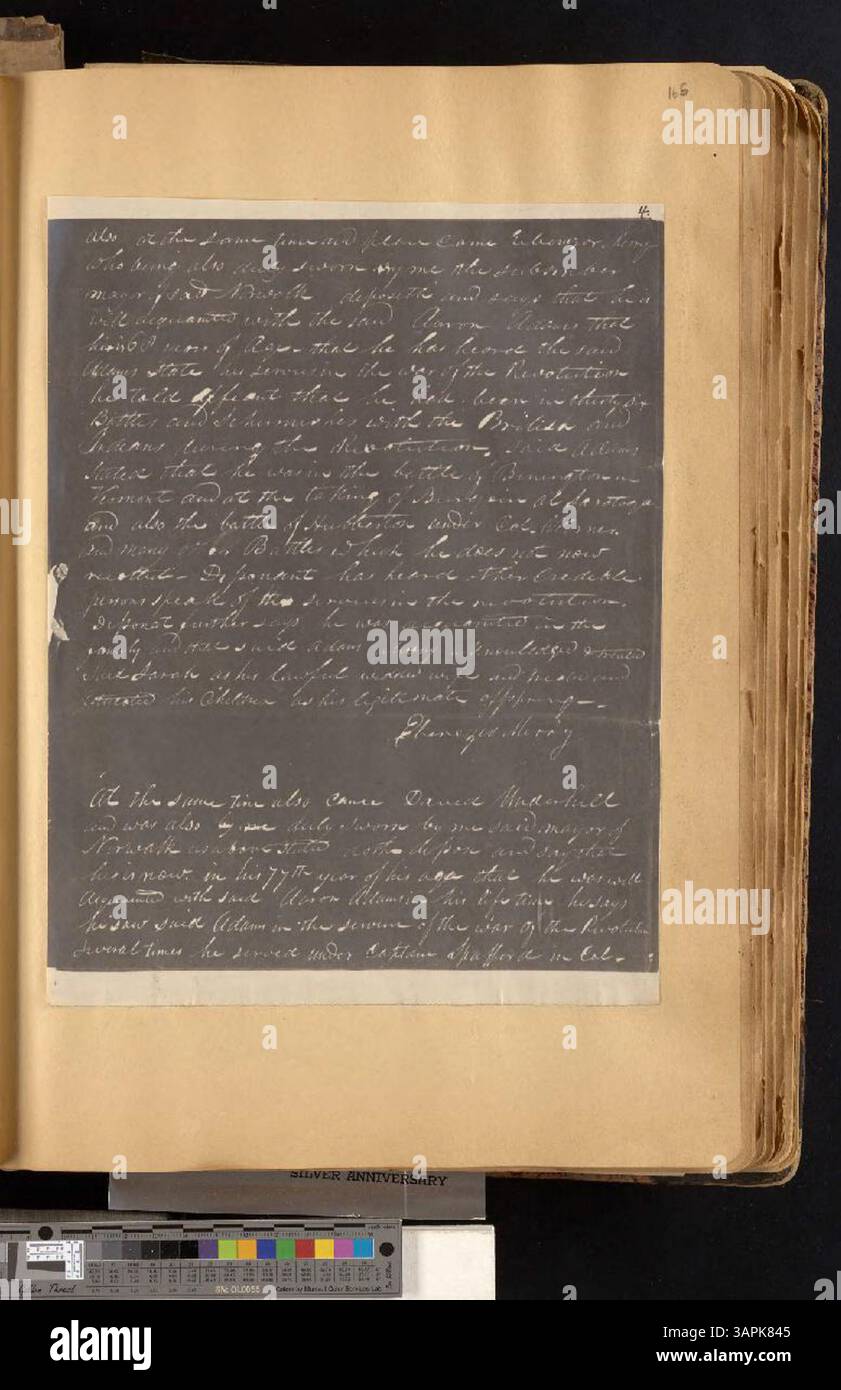 165
4.
also at the same time and place came Ebenezer
who being also duly sworn by me the subscriber
mayor of said Norwalk deposeth and says that he is
well acquainted with the said Aaron Adams that
he is 68 years of Age - that he has heard the said
Adams state his services in the war of the Revolution
he told affiant that he had been in thirty six
Battles and Schirmishes with the British and
Indians during the Revolution, said Adams
stated that he was in the battle of Binington in
Vermont and at the taking of at Saratoga
and also the battle of Hubberton under Col. Warner
and many other Battles which he does not now
recollect - Deponant has heard other Credible
persons speak of the services in the revolution.
Deponat further says he was acquainted in the
family and that said Adams acknowledged & treated
Sarah as his lawful wedded wife and
his Children as his legitimate offspring -
Ebenezer Merry
At the same time also came David Underhill
and was also duly sworn by me said mayor of
Norwalk as above stated doth depose and say that
he is now in his 77th year of his age that he was well
acquainted with said Aaron Adams in his life time he says
he saw said Adams in the service of the war of the Revolution
several times he served under Captain Spafford in Col.
SILVER ANNIVERSARY
Golden Thread
SN: OL0055
Colors by Munsell Color Services Lab
a
alamy
Image ID: 3APK845
www.alamy.com